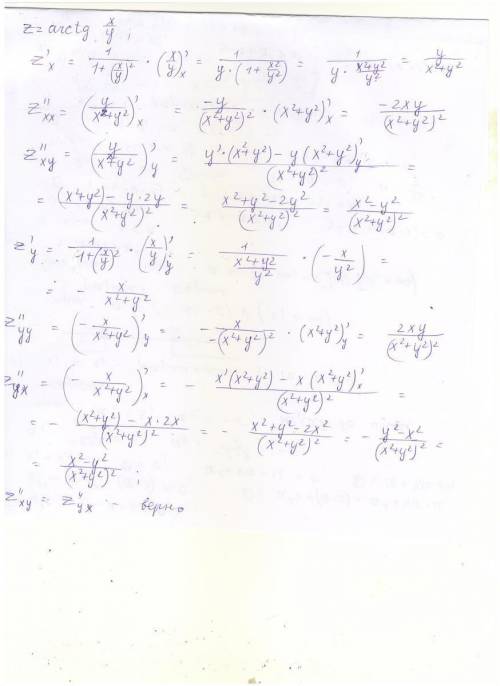 z = arctg x/y ;
z'x = 1/(1+(x/y)²) · (x/y)'x = 1/(y·(1+x²/y²)) = 1/(y·(x²+y²)/y²) = y/(x²+y²)
z''xx = (y/(x²+y²))'x = -y/(x²+y²)² · (x²+y²)'x = -2xy/(x²+y²)²
z''xy = (y/(x²+y²))'y = (y'·(x²+y²) - y(x²+y²)'y)/(x²+y²)² =
= ((x²+y²) - y·2y)/(x²+y²)² = (x²+y²-2y²)/(x²+y²)² = (x²-y²)/(x²+y²)²
z'y = 1/(1+(x/y)²) · (x/y)'y = 1/((x²+y²)/y²) · (-x/y²) =
= - x/(x²+y²)
z''yy = (-x/(x²+y²))'y = - x/(-(x²+y²)²) · (x²+y²)'y = 2xy/(x²+y²)²
z''yx = (-x/(x²+y²))'x = - (x'(x²+y²) - x(x²+y²)'x)/(x²+y²)² =
= - ((x²+y²) - x·2x)/(x²+y²)² = - (x²+y²-2x²)/(x²+y²)² = - (y²-x²)/(x²+y²)² =
= (x²-y²)/(x²+y²)² ;
z''xy = z''yx - верно